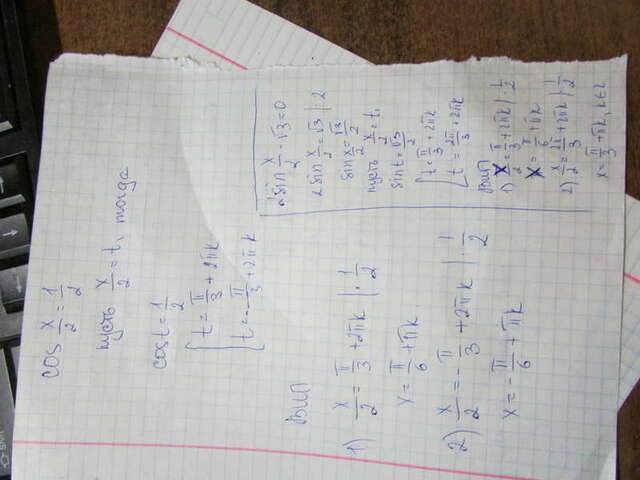 cos x/2 = 1/2
пусть x/2 = t, тогда
cos t = 1/2
[ t = π/3 + 2πk
t = -π/3 + 2πk
ВИП
1) x/2 = π/3 + 2πk | · 1/2
x = π/6 + πk
2) x/2 = -π/3 + 2πk | · 1/2
x = -π/6 + πk
2 sin x/2 - √3 = 0
2 sin x/2 = √3 | 2
sin x/2 = √3/2
пусть x/2 = t,
sin t = √3/2
[ t = π/3 + 2πk
t = 2π/3 + 2πk
ВИП
1) x/2 = π/3 + 2πk | · 1/2
x = π/6 + πk
2) x/2 = 2π/3 + 2πk | · 1/2
x = π/3 + πk, k∈Z